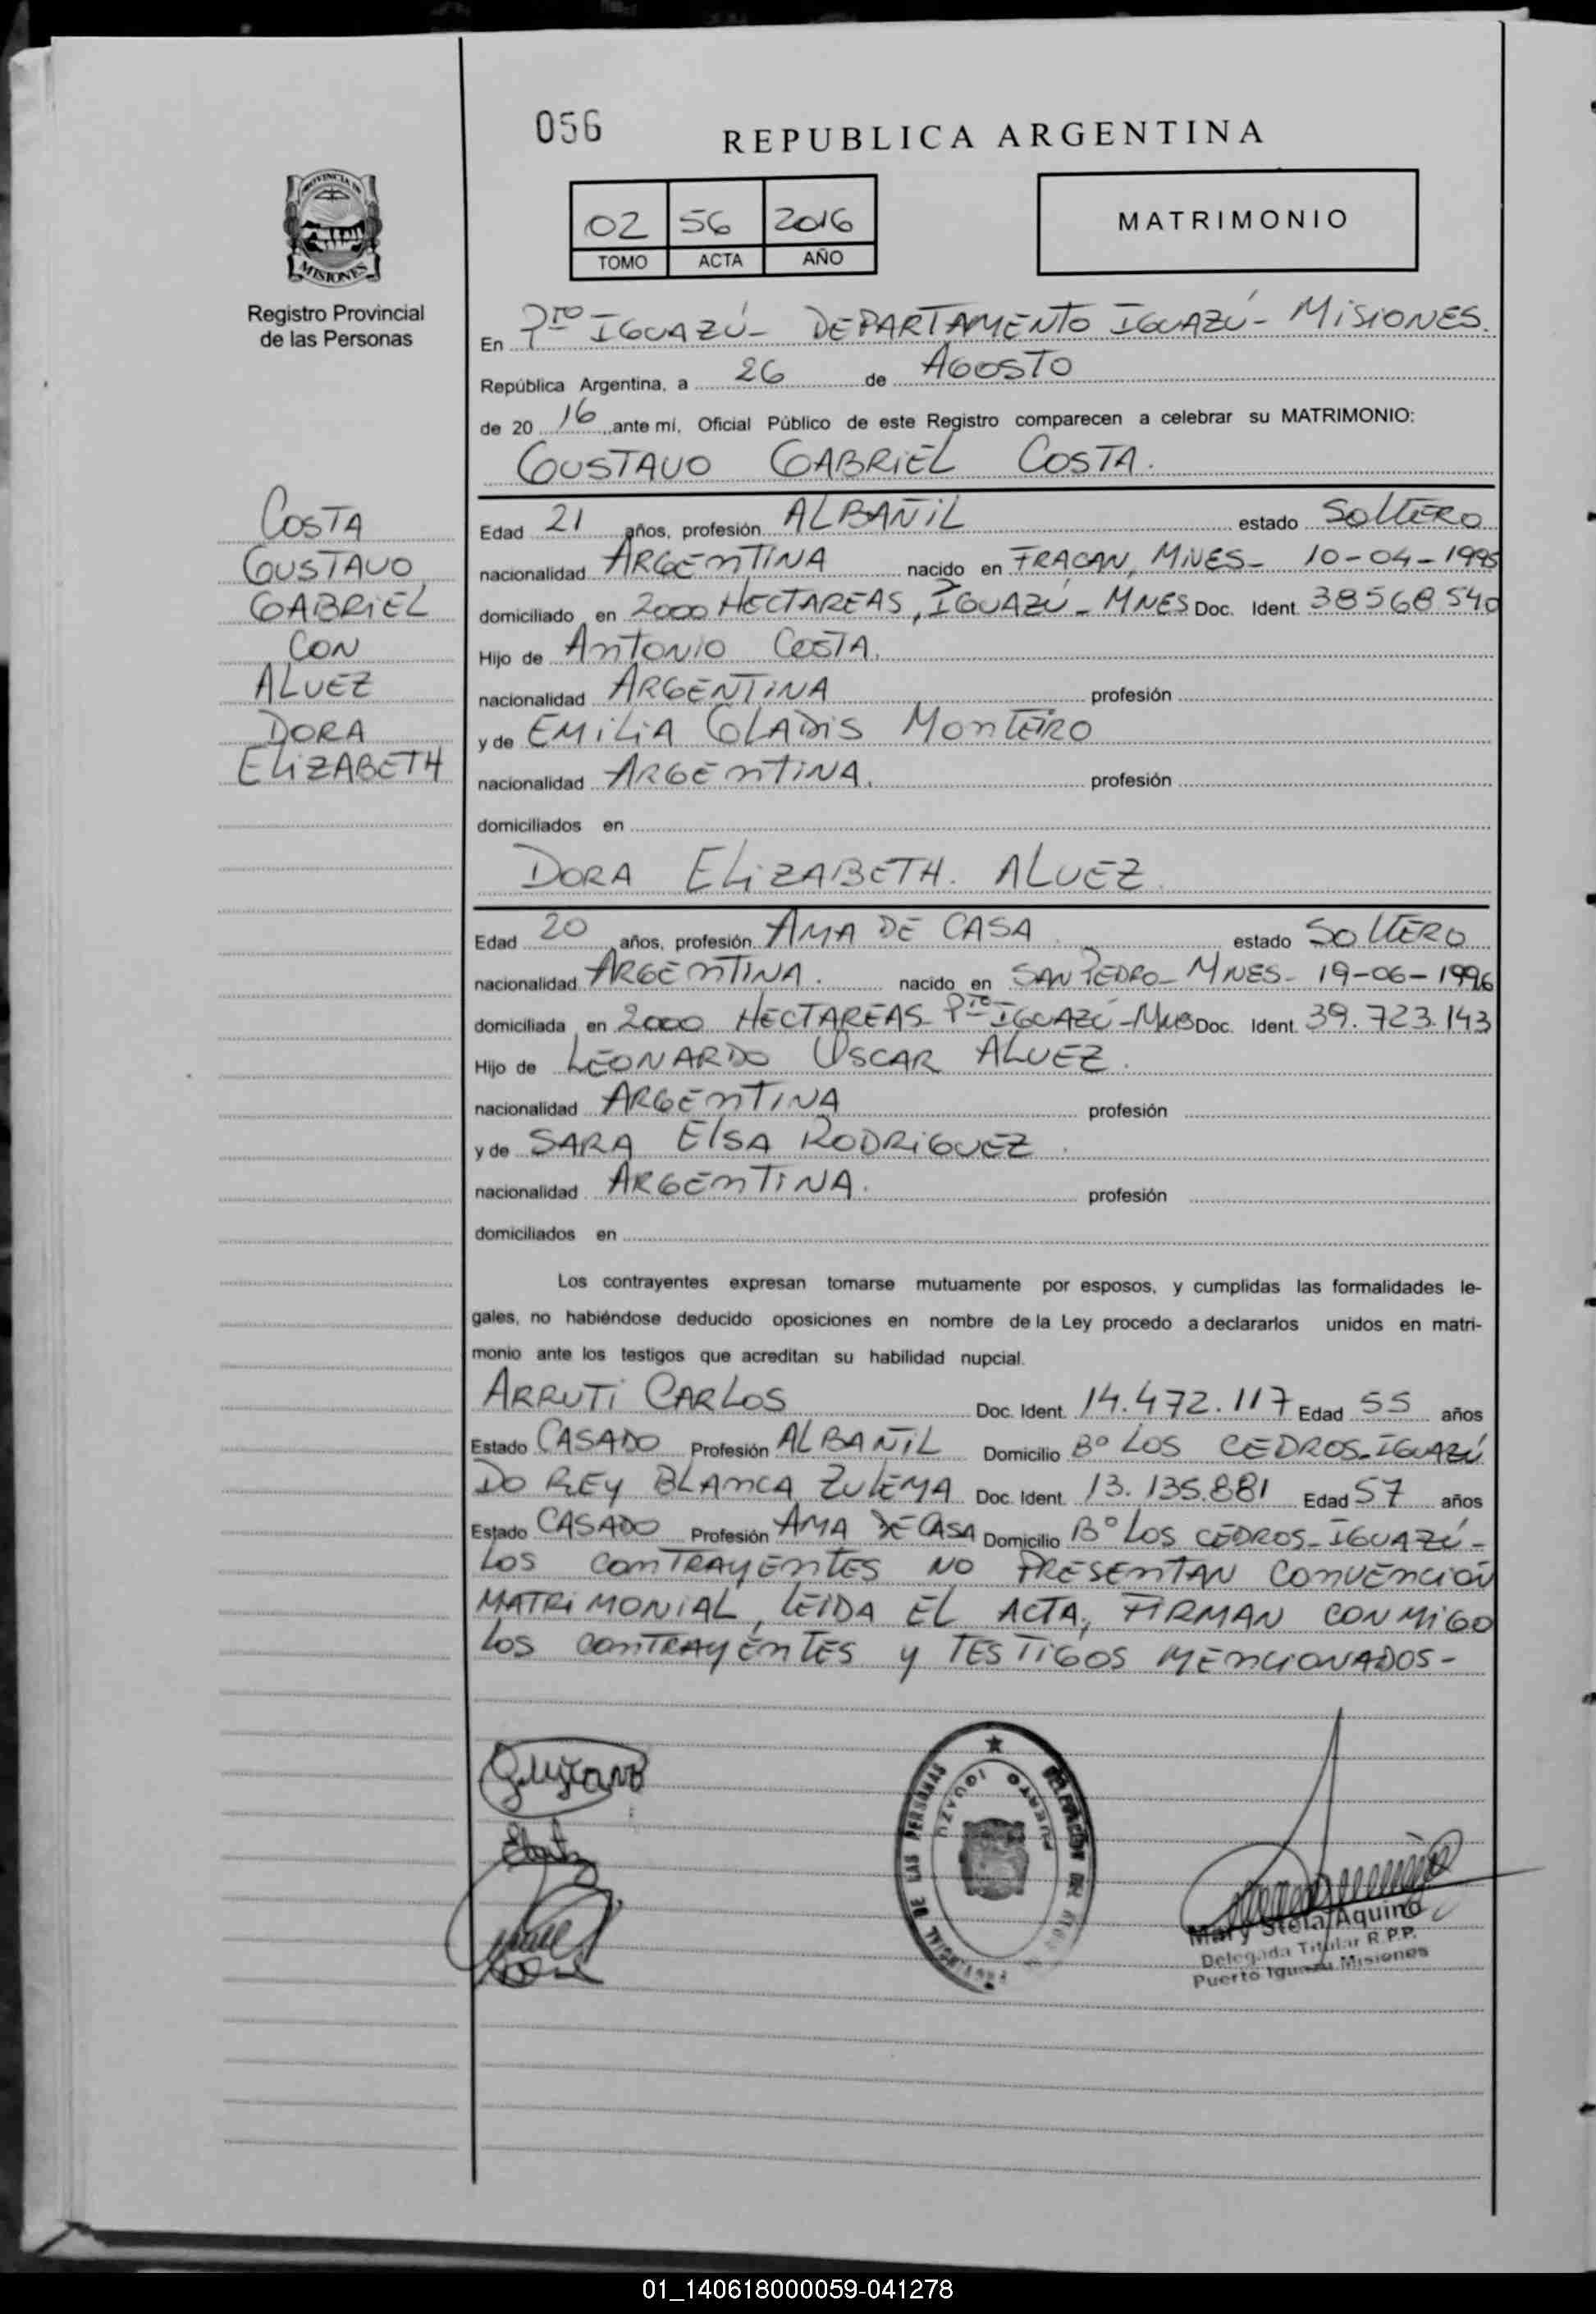 056
REPUBLICA ARGENTINA
02 56 2016
TOMO ACTA AÑO
MATRIMONIO
PROVINCIA DE
MISIONES
Registro Provincial
de las Personas
En Pto IGUAZÚ - DEPARTAMENTO IGUAZÚ - MISIONES.
República Argentina, a 26 de AGOSTO
de 20 16 ante mi, Oficial Público de este Registro comparecen a celebrar su MATRIMONIO:
GUSTAVO GABRIEL COSTA.
COSTA
GUSTAVO
GABRIEL
CON
ALVEZ
DORA
ELIZABETH
Edad 21 años, profesión ALBAÑIL estado SOLTERO
nacionalidad ARGENTINA nacido en FRACAN, MNES - 10-04-1995
domiciliado en 2000 HECTAREAS, IGUAZÚ - MNES Doc. Ident. 38568540
Hijo de ANTONIO COSTA.
nacionalidad ARGENTINA profesión
y de EMILIA GLADIS MONTEIRO
nacionalidad ARGENTINA. profesión
domiciliados en
DORA ELIZABETH. ALVEZ.
Edad 20 años, profesión AMA DE CASA estado SOLTERO
nacionalidad ARGENTINA. nacido en SAN PEDRO - MNES - 19-06-1996
domiciliada en 2000 HECTAREAS Pto IGUAZÚ - MNES Doc. Ident. 39.723.143
Hijo de LEONARDO OSCAR ALVEZ.
nacionalidad ARGENTINA profesión
y de SARA ELSA RODRIGUEZ.
nacionalidad ARGENTINA. profesión
domiciliados en
Los contrayentes expresan tomarse mutuamente por esposos, y cumplidas las formalidades le-
gales, no habiéndose deducido oposiciones en nombre de la Ley procedo a declararlos unidos en matri-
monio ante los testigos que acreditan su habilidad nupcial.
ARRUTI CARLOS Doc. Ident. 14.472.117 Edad 55 años
Estado CASADO Profesión ALBAÑIL Domicilio Bº LOS CEDROS - IGUAZÚ
DO REY BLANCA ZULEMA Doc. Ident. 13.135.881 Edad 57 años
Estado CASADO Profesión AMA DE CASA Domicilio Bº LOS CEDROS - IGUAZÚ -
LOS CONTRAYENTES NO PRESENTAN CONVENCIÓN
MATRIMONIAL, LEIDA EL ACTA, FIRMAN CONMIGO
LOS CONTRAYENTES y TESTIGOS MENCIONADOS -
PUERTO IGUAZU
DE LAS PERSONAS
Mary Stela Aquino
Delegada Titular R.P.P.
Puerto Iguazu Misiones
01_140618000059-041278